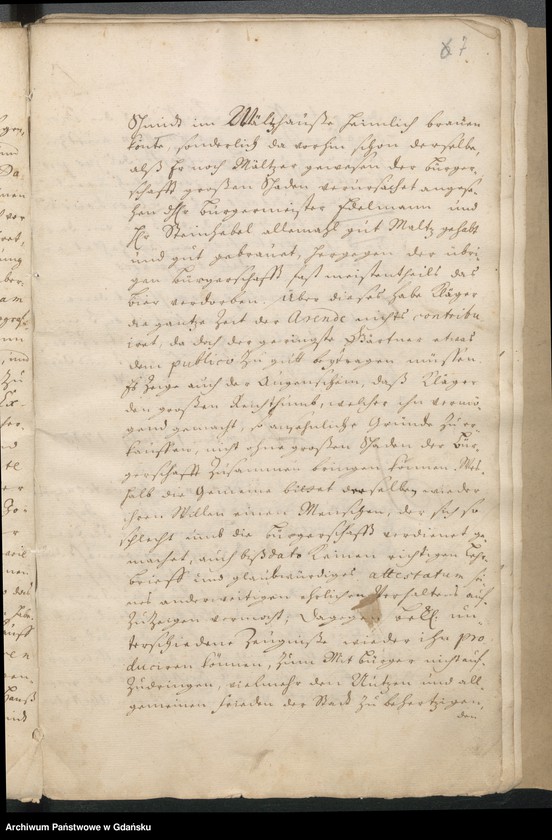 67
Schmidt im Mältzhauße heimlich brauen
könte, sonderlich da vorhin schon derselbe,
alß Er noch Mältzer gewesen der Bürger-
schafft großen Schaden verursachet angese-
hen Bürgermeister Edelmann und
Hr Steinhebel allemahl gut Maltz gehabt
und gut gebrauet, hergegen der übri-
gen Bürgerschafft fast meistentheils das
bier verdorben. Über dieses habe Kläger
die gantze Zeit der Arende nichts contribu
iret, da doch der geringste Gärtner etwas
dem publico zu gutt beytragen müssen
Es zeige auch der Augenschein, daß Kläger
den großen Reichthumb, welcher ihn vermö-
gend gemacht, so ansehnliche Gründe zu er-
kauffen, nicht ohne großen Schaden der Bür-
gerschafft zusammen bringen können. Wes-
halb die Gemeine bittet derselben wieder
ihren Willen einen Menschen, der sich so
schlecht umb die Bürgerschafft verdienet ge-
machet, auch bißdato keinen richtigen Lehr-
brieff und glaubwürdiges attestatum sei-
nes anderweitigen ehrlichen Verhaltens auff-
zuzeigen vermocht, Dagegen Bekl. un-
terschiedene Zeugniße wieder ihn pro-
duciren können, zum Mitbürger nicht auff-
zudringen, vielmehr den Nutzen und all-
gemeinen frieden der Stadt zu behertzigen,
den
Archiwum Państwowe w Gdańsku